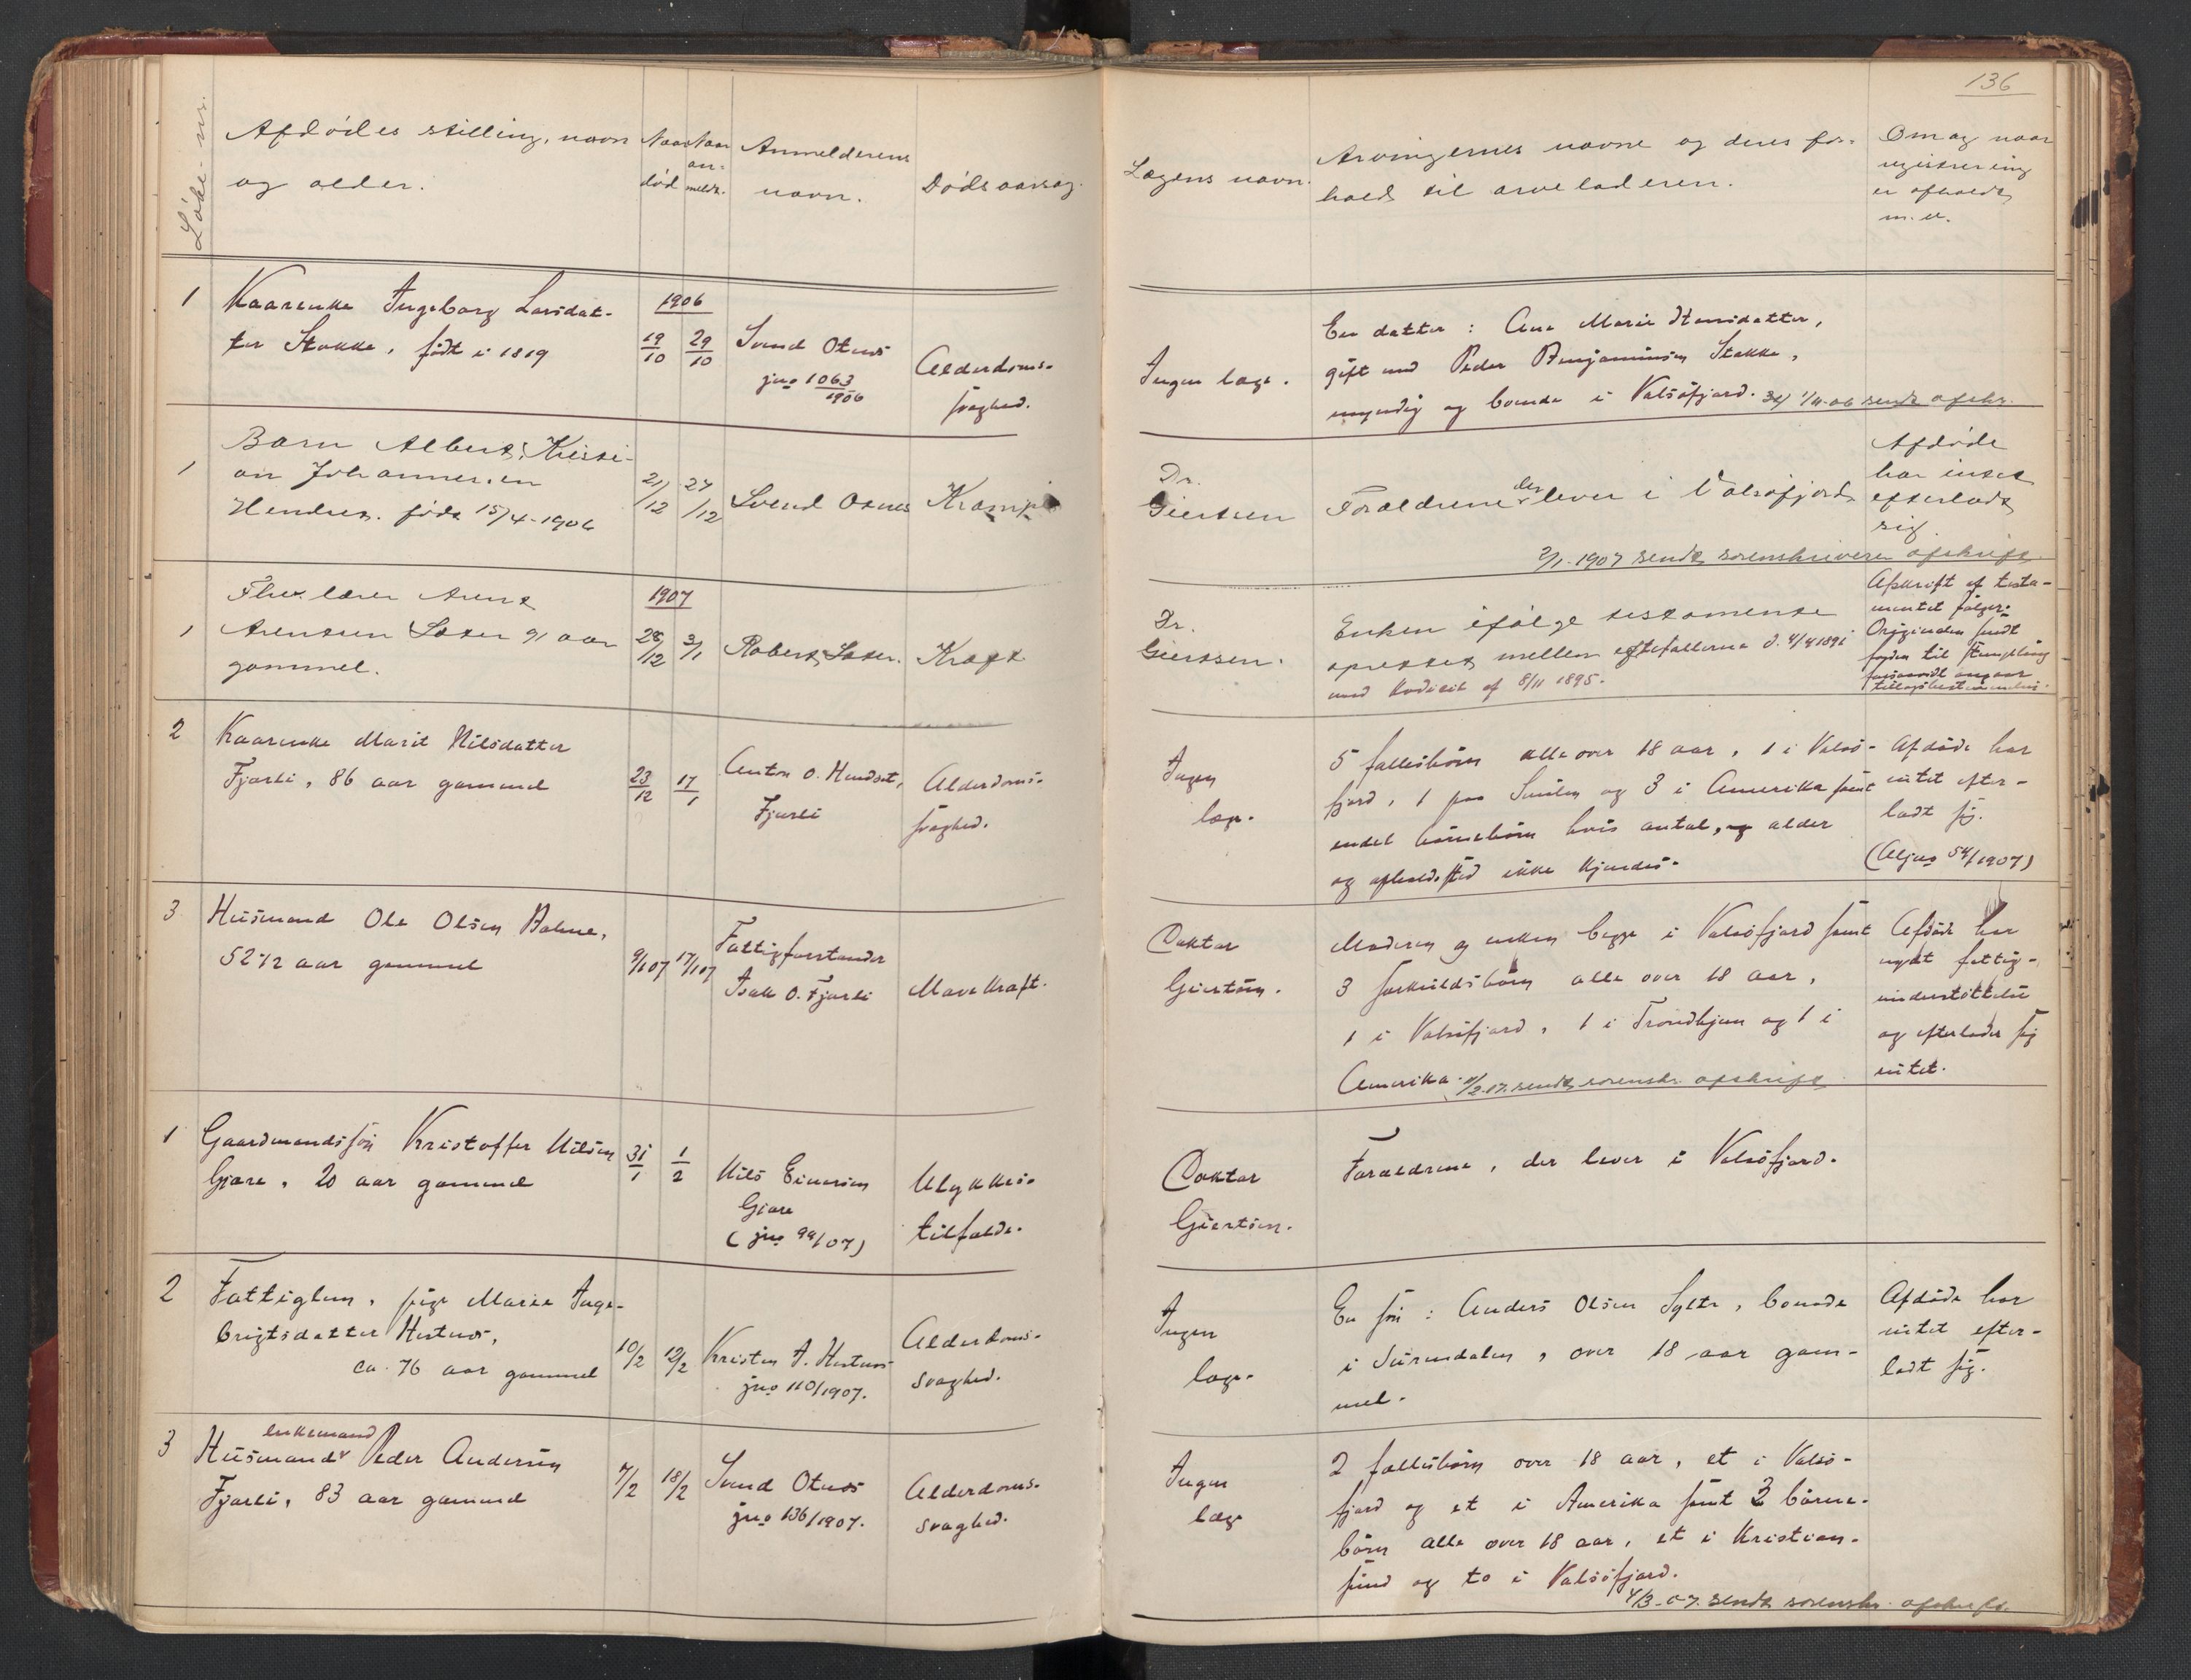 136
Löbe-nr.
Afdödes stilling, navn
og alder.
Naar
död
Naar
an-
meldt.
Anmelderens
navn.
Dödsaarsag.
Lægens navn.
Arvingernes navne og deres for-
hold til arveladeren.
Om og naar
registrering
er afholdt
m. v.
1
Kaarenke Ingeborg Larsdat-
ter Stokke, födt i 1819
1906
19/10
29/10
Svend Otnes
jno 1063/1906
Alderdoms-
svaghed.
Ingen læge.
En datter: Ane Marie Hansdatter,
gift med Peder Benjaminsen Stokke,
myndig og boende i Valsöfjord. 1/11-06 sendt afskr.
1
Barn Albert Kristi-
an Johannessen
Hendset. födt 15/4-1906
21/12
27/12
Svend Otnes
Krampe
Dr.
Giertsen
Forældrene der lever i Valsöfjord
Afdöde
har intet
efterladt
sig.
2/1-1907 sendt sorenskriveren afskrift.
1
Fhv. lærer Arent
Arentsen Sæter 91 aar
gammel.
1907
28/12
3/1
Robert Sæter.
Kræft
Dr.
Giertsen.
Enken ifölge testamente
oprettet mellem ægtefællerne d. 4/4 1891
med kodicil af 8/11 1895.
Afskrift af testa-
mentet fölger.
Originalen sendt
fogden til stempling
forsaavidt angaar
2
Kaarenke Marit Nilsdatter
Fjærli, 86 aar gammel
23/12
17/1
Anton O. Hendset,
Fjærli
Alderdoms-
svaghed.
Ingen
læge.
5 fællesbörn alle over 18 aar, 1 i Valsö-
fjord, 1 paa Smölen og 3 i Amerika samt
endel börnebörn hvis antal, og alder
og opholdssted ikke kjendes.
Afdöde har
intet efter-
ladt sig.
(Aljno 54/1907)
3
Husmand Ole Olsen Bakne,
52 1/2 aar gammel
9/1 07
17/1 07
Fattigforstander
Isak O. Fjærli
Mavekræft.
Doktor
Giertsen.
Moderen og enken begge i Valsöfjord samt
3 særkuldsbörn alle over 18 aar,
1 i Valsöfjord, 1 i Trondhjem og 1 i
Amerika. /2.07. sendt sorenskr. afskrift.
Afdöde har
nydt fattig-
understöttelse
og efterlader sig
intet.
1
Gaardmandssön Kristoffer Nilsen
Gjære, 20 aar gammel
31/1
1/2
Nils Einersen
Gjære
(jno 99/07)
Ulykkes-
tilfælde.
Doktor
Giertsen.
Forældrene, der lever i Valsöfjord.
2
Fattiglem, pige Marie Inge-
brigtsdatter Hestnes,
ca. 76 aar gammel
10/2
12/2
Kristen A. Hestnes
jno 110/1907.
Alderdoms-
svaghed.
Ingen
læge.
En sön: Anders Olsen Sylte, boende
i Surendalen, over 18 aar gam-
mel.
Afdöde har
intet efter-
ladt sig.
3
enkemand
Husmand Peder Andersen
Fjærli, 83 aar gammel
7/2
18/2
Svend Otnes
jno 136/1907.
Alderdoms-
svaghed.
Ingen
læge
2 fællesbörn over 18 aar, et i Valsö-
fjord og et i Amerika samt 3 börne-
börn alle over 18 aar, et i Kristian-
sund og to i Valsöfjord.
4/3-07. sendt sorenskr. afskrift.